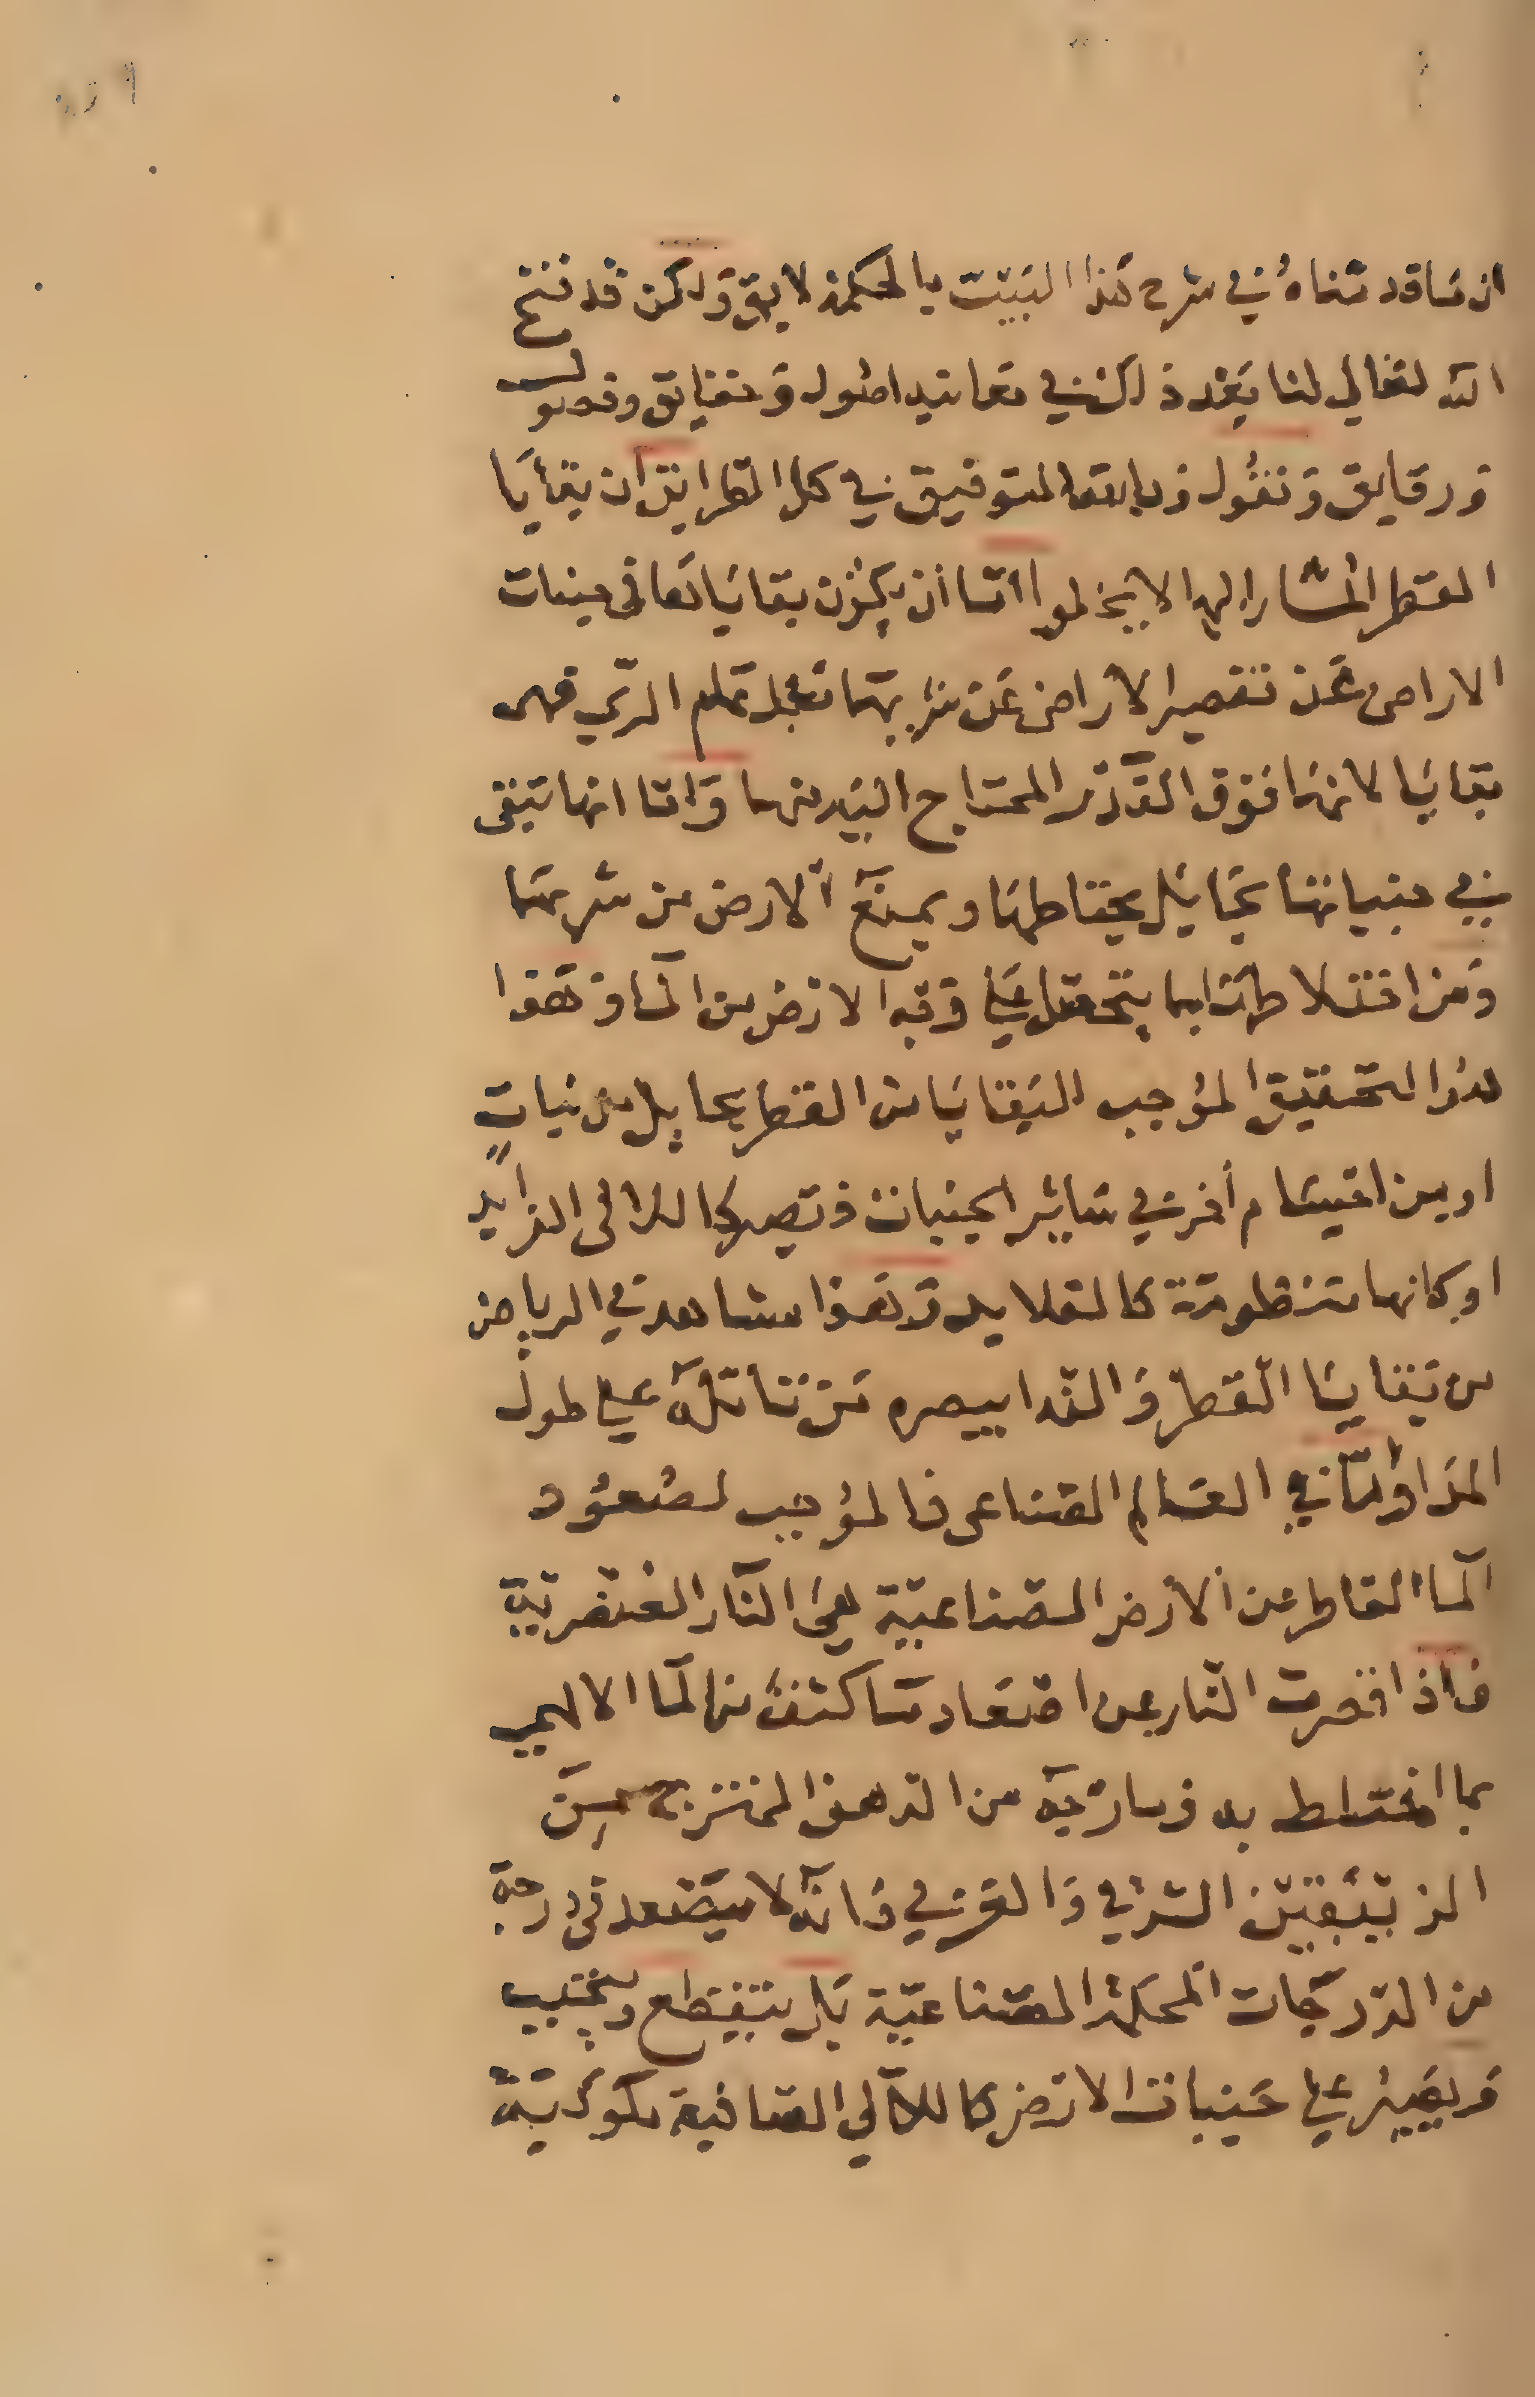 ان ما قدمناه في شرح هذا البيت بالحكمة لايق ولكن قد فتح
الله تعالى لنا بعد ذلك في معانيه اصول وحقايق وفصول
ورقايق ونقول وبالله التوفيق في كل الطرايق ان بقايا
القطر المشار اليها لا يخلوا اما ان يكون بقاياها في جنبات
الاراضى عن تقصير الاراضى عن شربها بعد تمام الري فهى
بقايا لانها فوق القدر المحتاج اليه منها واما انها تبقى
في جنباتها بحايل يحتاطها ويمنع الارض من شربها
ومن اختلاطها بما يتحصل على وجه الارض من الماء وهذا
هو التحقيق الموجب البقايا من القطر بحايل من نبات
او من اقسام أخر في ساير الجنبات وتصير كاللالى الفرايد
او كانها منظومة كالقلايد وهذا مشاهد في الرياض
من بقايا القطر والندا يبصره من تأمله على طول
المدا وأما في العالم الصناعى فالموجب لصعود
الماء القاطر عن الارض الصناعية هى النار العنصرية
فاذا اقصرت النار عن اصعاد ما كثف من الماء الالهي
بما اختلط به ومازجه من الدهن الممتزج من
الزيبقين الشرقي والغربي فانه لا يصعد في درجة
من الدرجات المحكمة الصناعية بل ينقطع ويجتنب
ويصير على جنبات الارض كاللآلي الصافية كوكبية